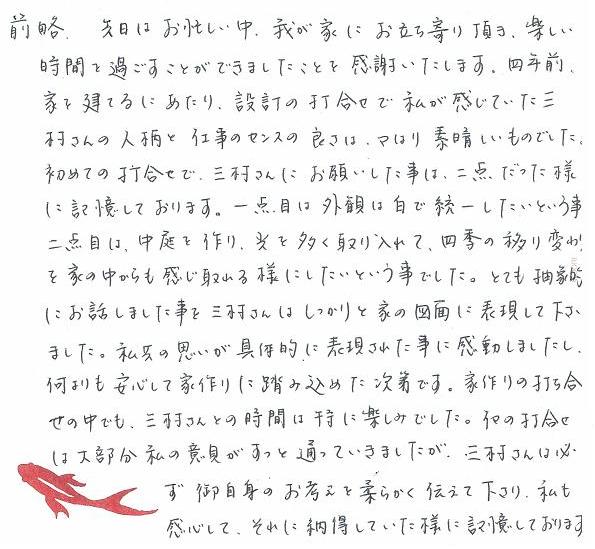 前略、先日はお忙しい中、我が家にお立ち寄り頂き、楽しい
時間を過ごすことができましたことを感謝いたします。四年前、
家を建てるにあたり、設計の打合せで私が感じていた三
村さんの人柄と仕事のセンスの良さは、やはり素晴しいものでした。
初めての打合せで、三村さんにお願いした事は、二点だった様
に記憶しております。一点目は外観は白で統一したいという事
二点目は、中庭を作り、光を多く取り入れて、四季の移り変わり
を家の中からも感じ取れる様にしたいという事でした。とても抽象的
にお話しました事を三村さんはしっかりと家の図面に表現して下さい
ました。私共の思いが具体的に表現された事に感動しましたし、
何よりも安心して家作りに踏み込めた次第です。家作りの打ち合
せの中でも、三村さんとの時間は特に楽しみでした。他の打合せ
は大部分私の意見がすっと通っていきましたが、三村さんは必
ず御自身のお考えを柔らかく伝えて下さり、私も
感心して、それに納得していた様に記憶しております